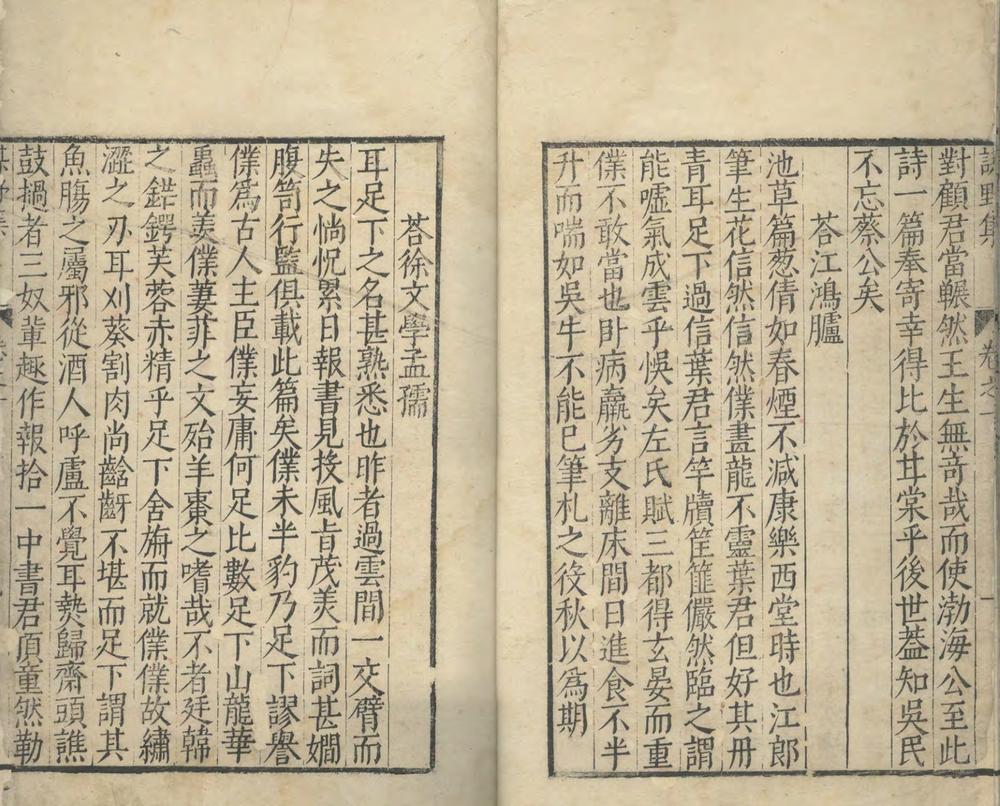 對顧君當冁然王生無奇哉而使渤海公至此
詩一篇奉寄幸得比於甘棠乎後世葢知吳民
不忘蔡公矣
荅江鴻臚
池草篇葱倩如春煙不減康樂西堂時也江郎
筆生花信然信然僕畫龍不靈葉君但好其冊
青耳足下過信葉君言竿牘筐篚儼然臨之謂
能噓氣成雲乎悞矣左氏賦三都得玄晏而重
僕不敢當也卧病羸劣支離床間日進食不半
升而喘如吳牛不能已筆札之役秋以爲期
荅徐文學孟孺
耳足下之名甚熟悉也昨者過雲間一交臂而
失之惝怳累日報書見投風旨茂美而詞甚嫺
腹笥行監俱載此篇矣僕未半豹乃足下謬譽
僕爲古人主臣僕妄庸何足比數足下山龍華
蟲而羙僕萋菲之文殆羊棗之嗜哉不者廷幹
之錯鍔芙蓉赤精乎足下舍旃而就僕僕故繡
澀之刃耳刈葵割肉尚齝齖不堪而足下謂其
魚腸之屬邪從酒人呼盧不覺耳熱歸齋頭譙
鼓撾者三奴輩趣作報拾一中書君頂童然勒